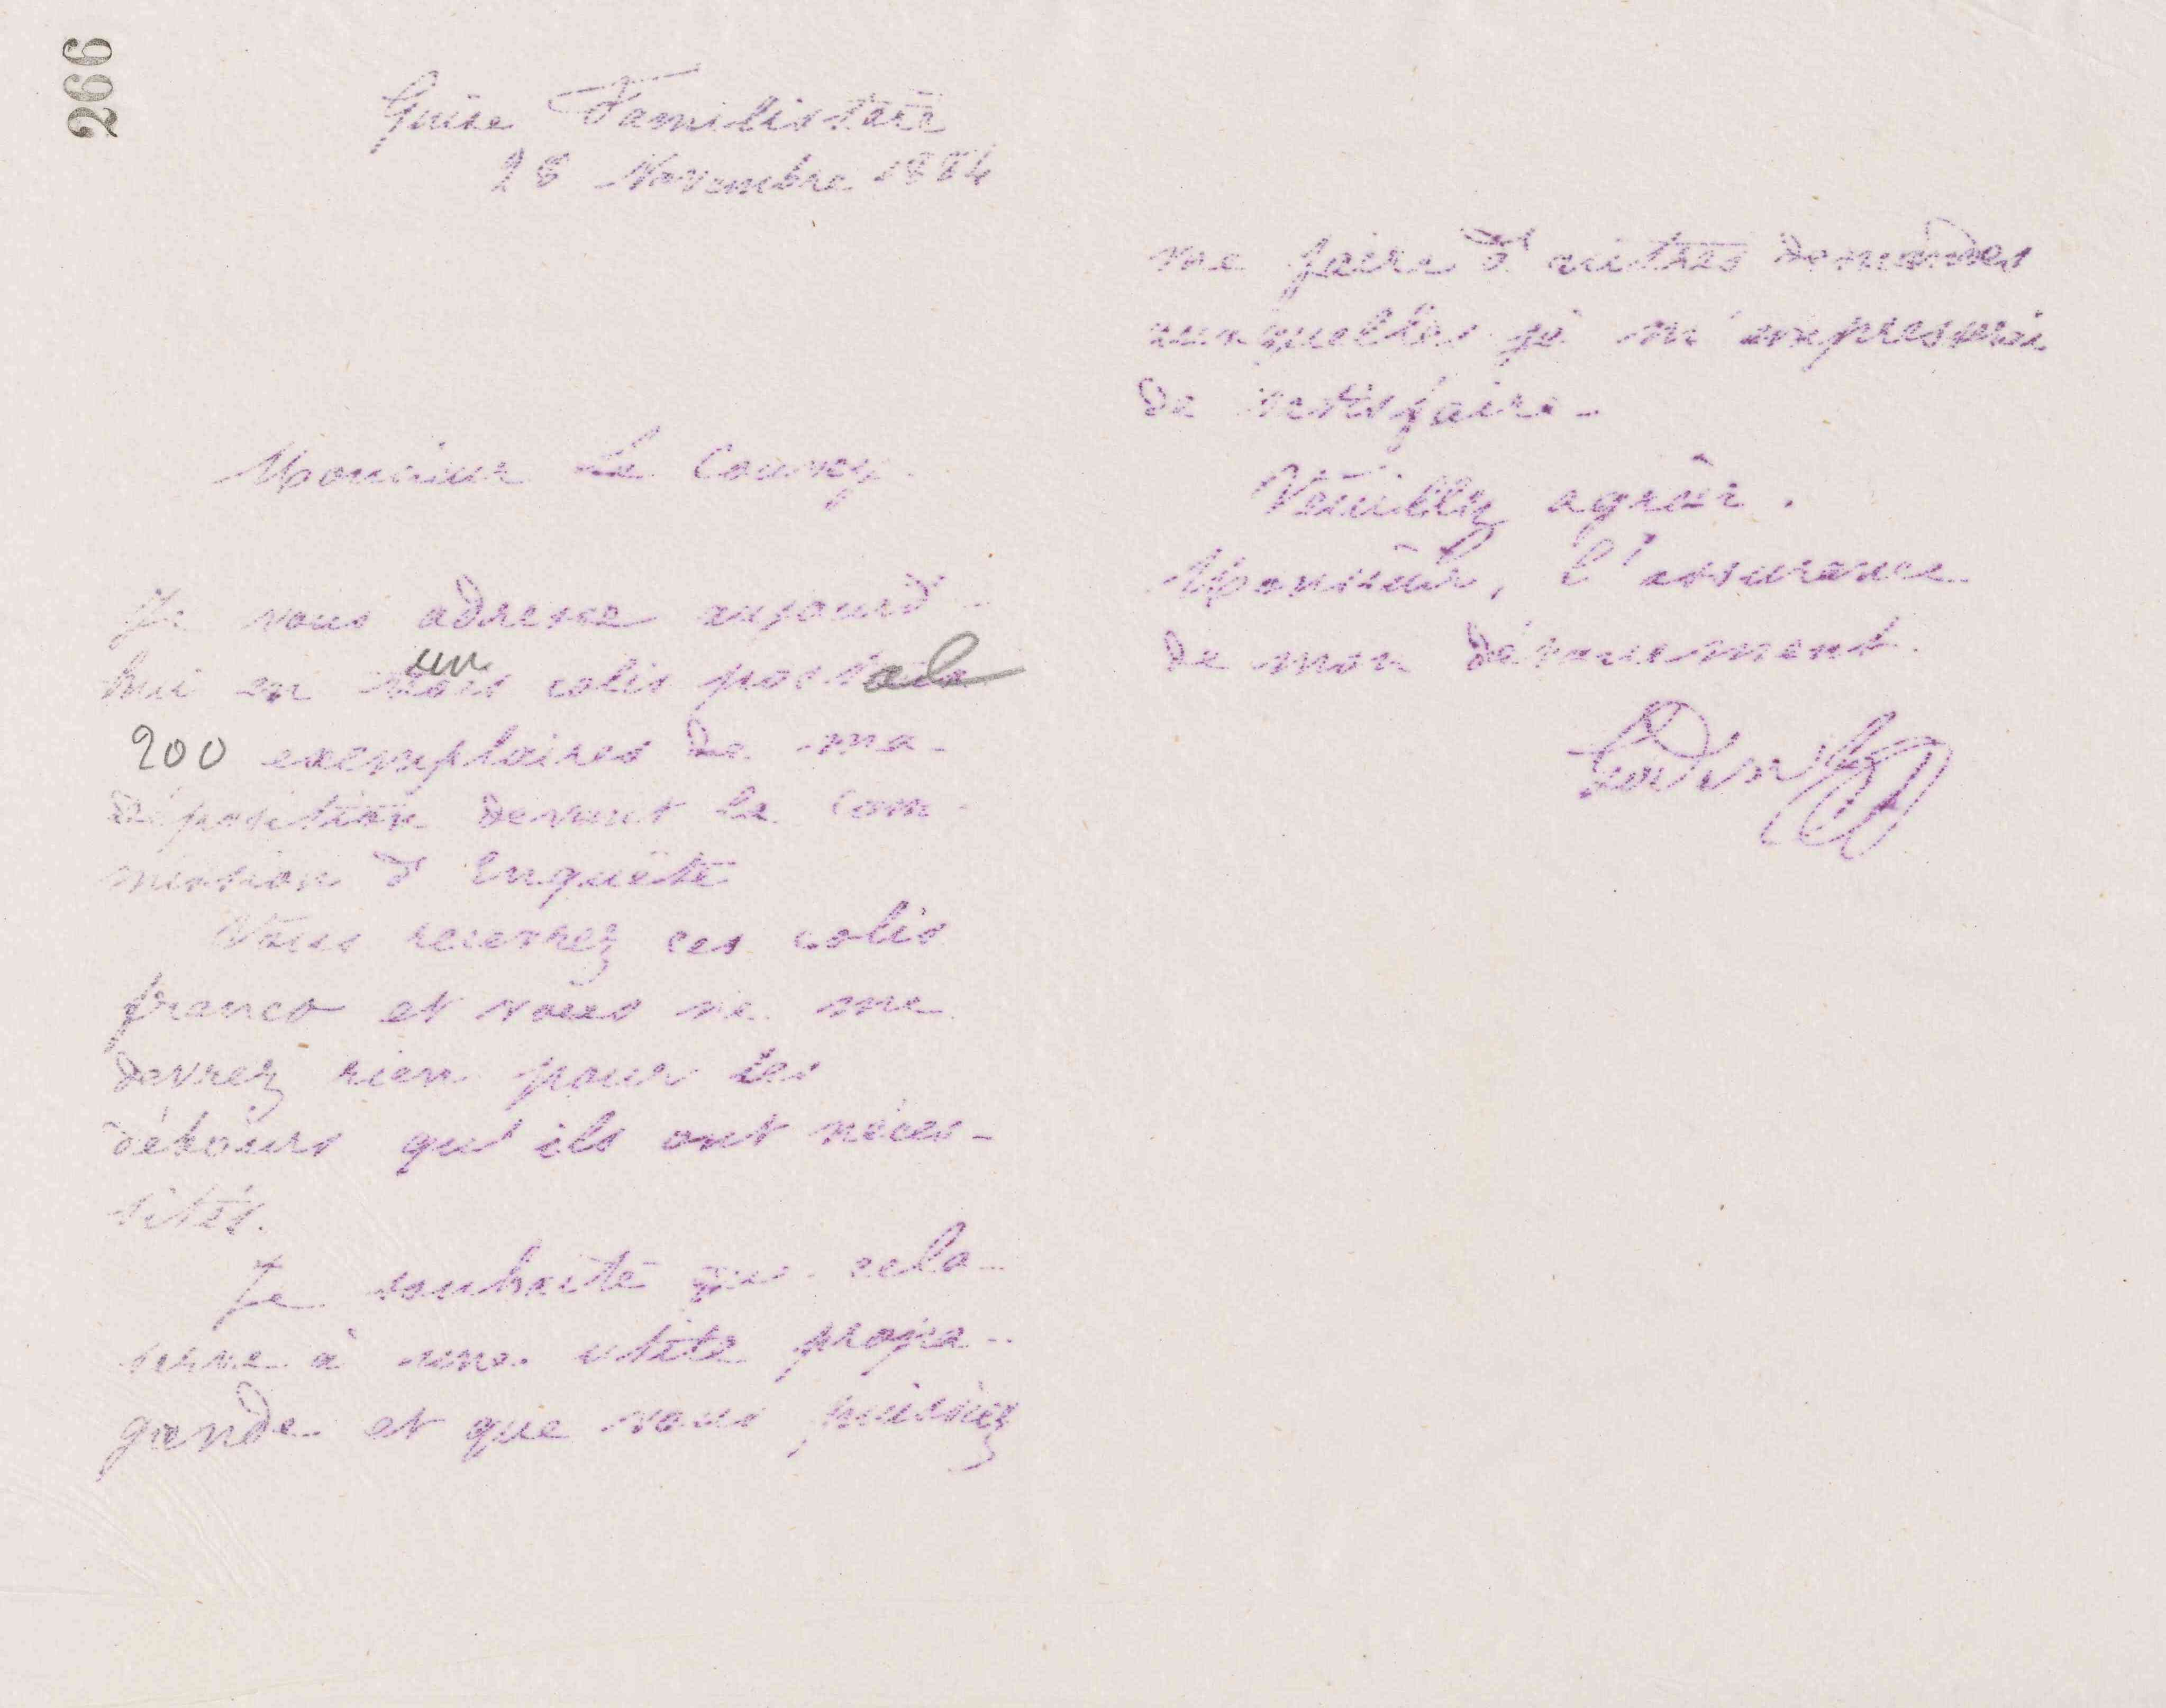 266
Guise Familistère
28 Novembre 1884
Monsieur Le Couvey
Je vous adresse aujourd'
hui en un colis postal
200 exemplaires de ma
déposition devant la Com-
mission d'Enquête
Vous recevrez ces colis
franco et vous ne me
devrez rien pour les
débours qu'ils ont néces-
sités.
Je souhaite que cela
serve à une utile propa-
gande et que vous puissiez
me faire d'autres demandes
auxquelles je m'empresserai
de satisfaire.
Veuillez agréer,
Monsieur, l'assurance
de mon dévouement.
Godin